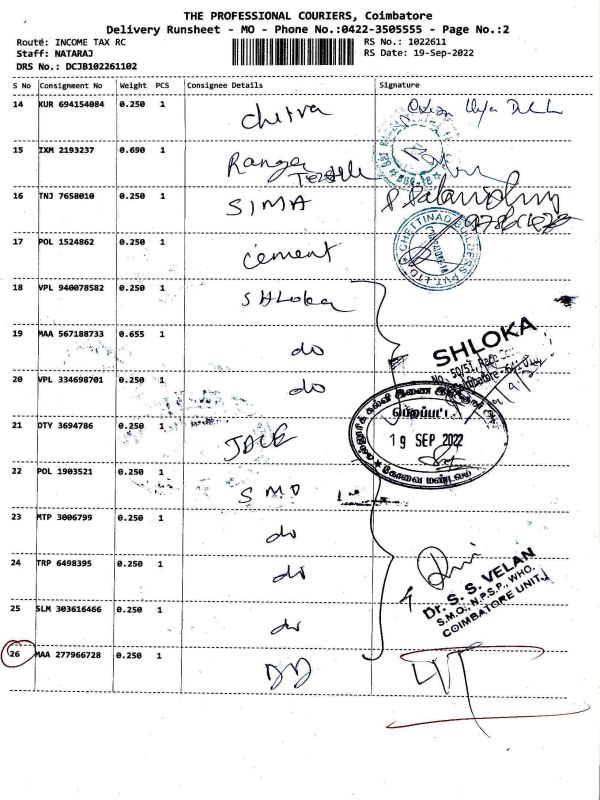 THE PROFESSIONAL COURIERS, Coimbatore
Delivery Runsheet - MO - Phone No.:0422-3505555 - Page No.:2
Route: INCOME TAX RC
RS No.: 1022611
Staff: NATARAJ
RS Date: 19-Sep-2022
DRS No.: DCJB102261102
S No Consignment No Weight PCS Consignee Details Signature
14 KUR 694154084 0.250 1 chitra
15 IXM 2193237 0.690 1 Ranga Textile
16 TNJ 7658010 0.250 1 SIMA
17 POL 1524862 0.250 1 cement
CHETTINAD BUILDERS PVT. LTD
18 VPL 940078582 0.250 1 SHLoka
19 MAA 567188733 0.655 1 do
SHLOKA
20 VPL 334698701 0.250 1 do
21 OTY 3694786 0.250 1 JDCE
19 SEP 2022
கோவை மண்டலம்
22 POL 1903521 0.250 1 SMO
23 MTP 3006799 0.250 1 do
24 TRP 6498395 0.250 1 do
Dr. S. S. VELAN
S.M.O., N.P.S.P., WHO.
COIMBATORE UNIT.
25 SLM 303616466 0.250 1 do
26 MAA 277966728 0.250 1